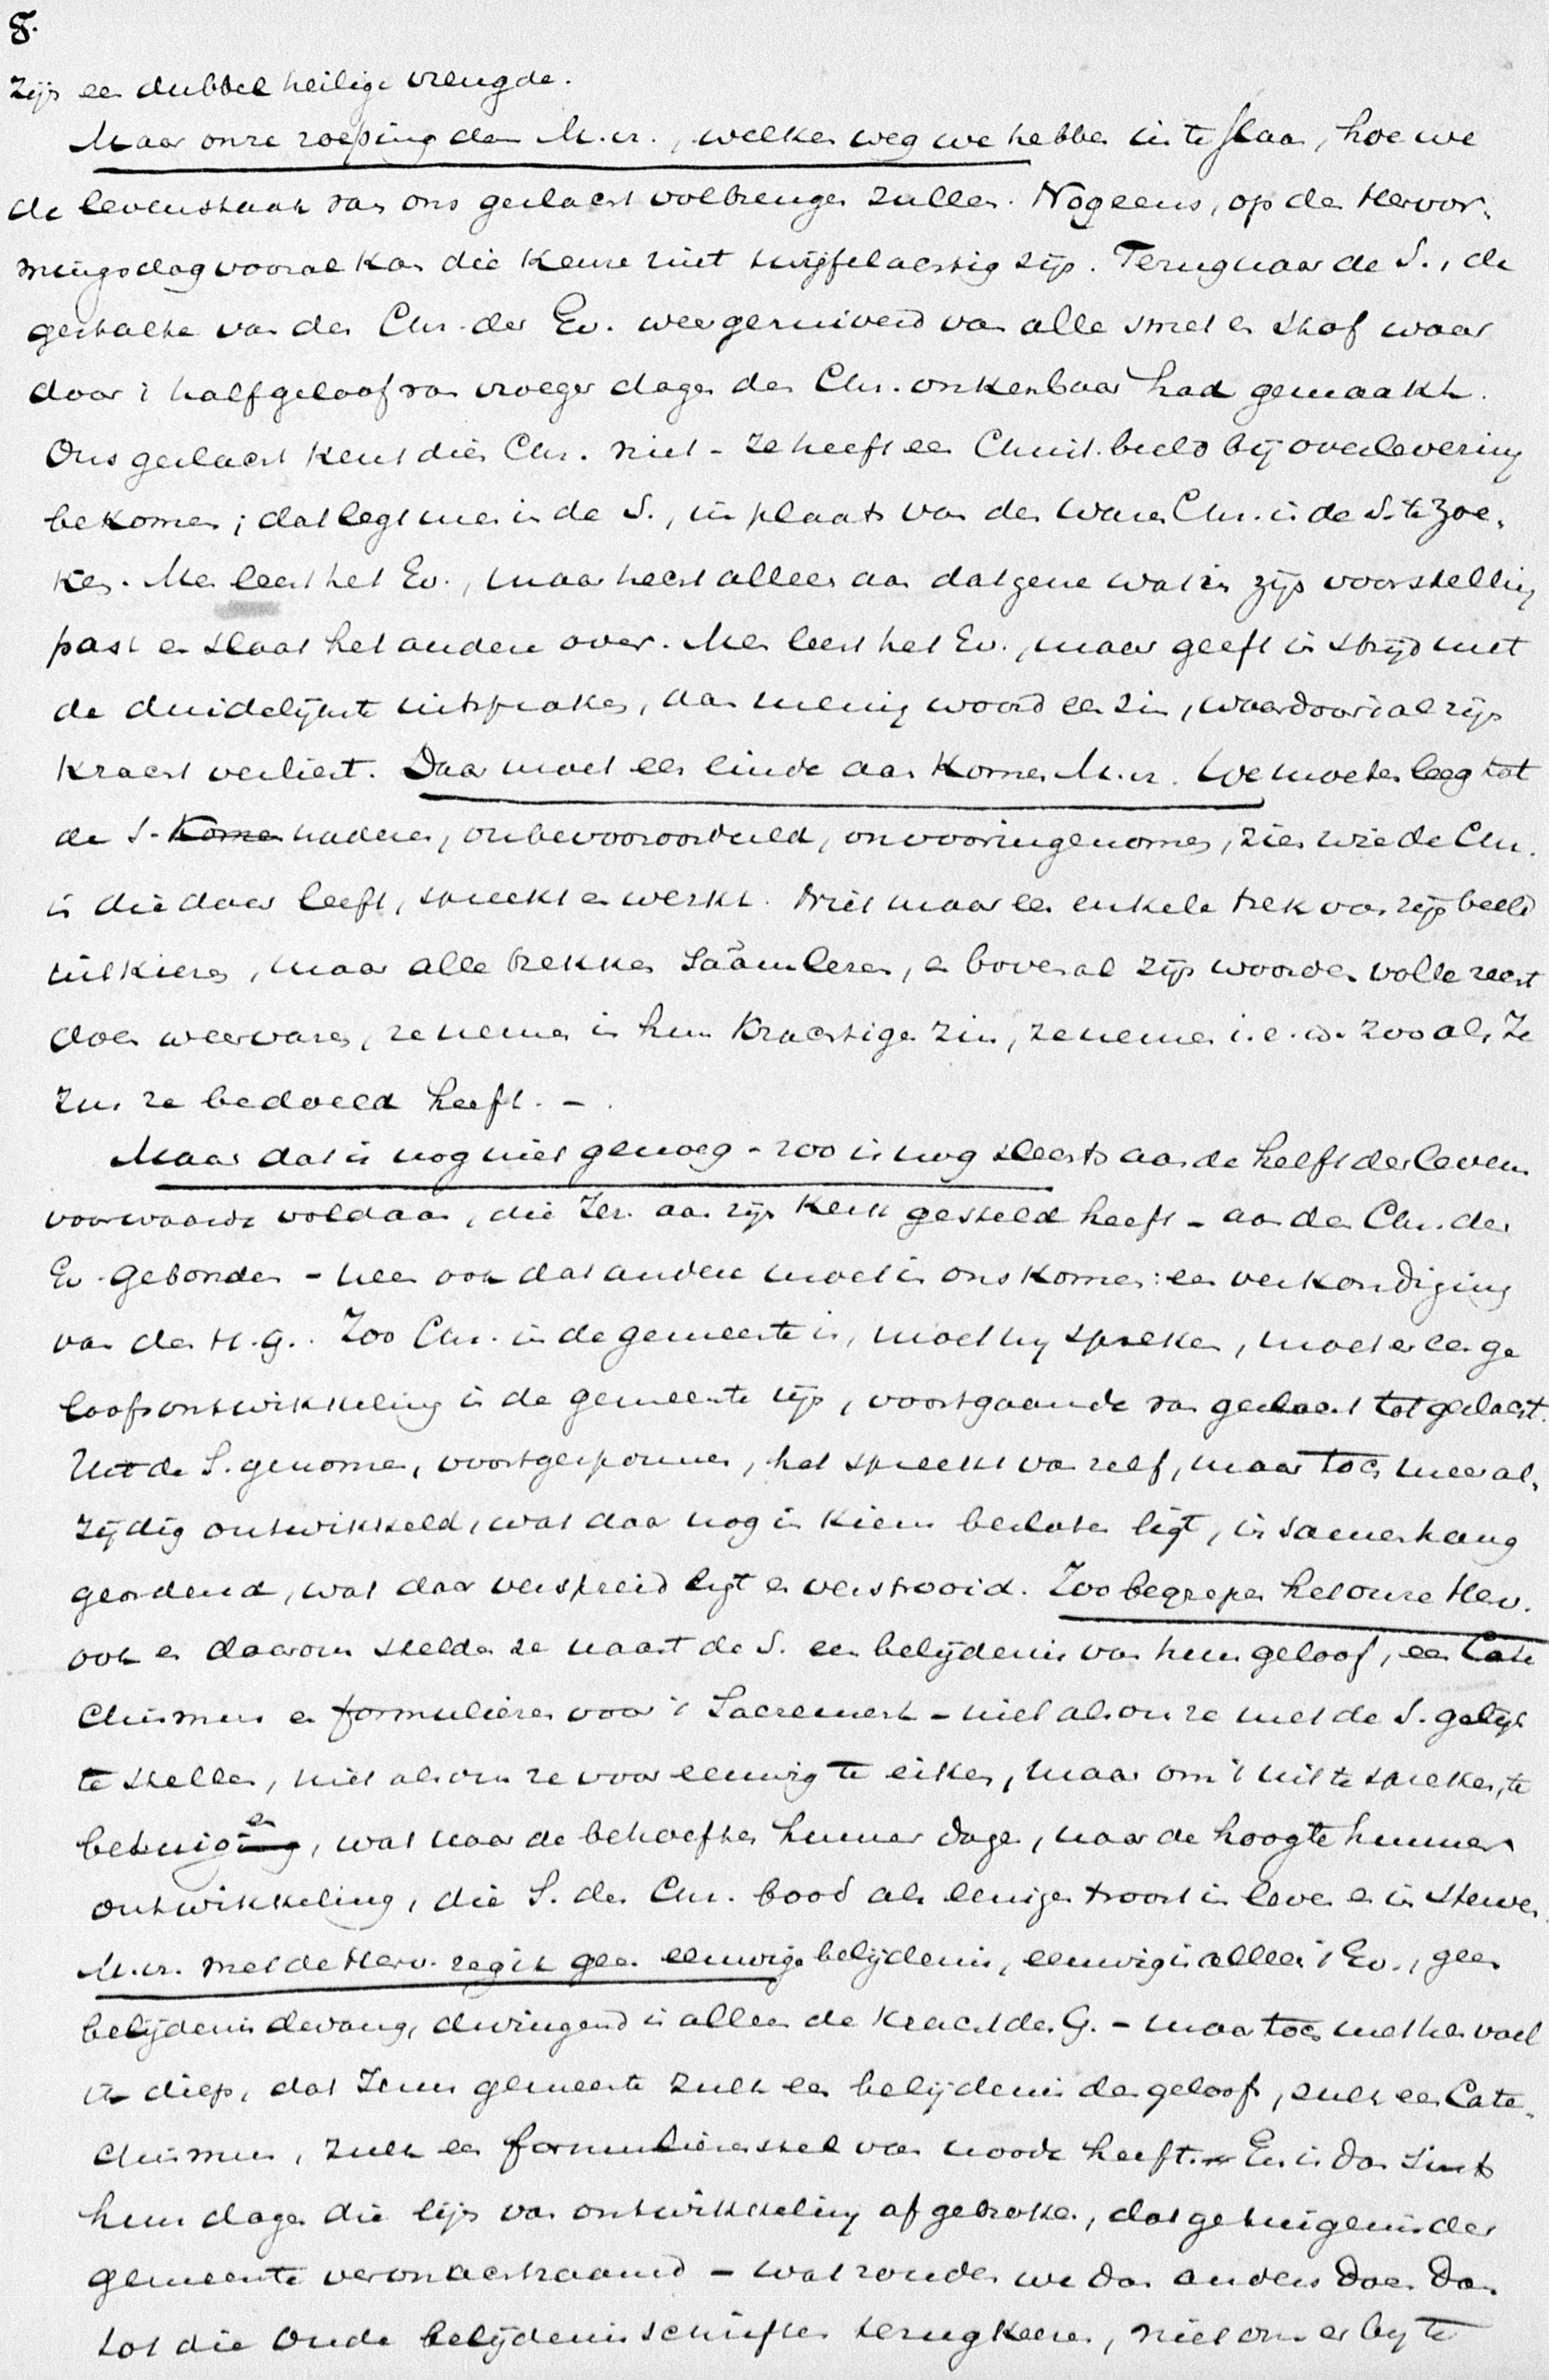 8.
zijn een dubbel heilige vreugde.
Maar onze roeping dan M.vr., welken weg we hebben in te slaan, hoe we
de levenstaak van ons geslacht volbrengen zullen. Nog eens, op den Hervor-
mingsdag vooral kan die keuze niet twijfelachtig zijn. Terug naar de S., de
gestalte van den Chr. der Ev. weer gezuiverd van alle smet en stof waar
door 't halfgeloof van vroeger dagen den Chr. onkenbaar had gemaakt.
Ons geslacht kent dien Chr. niet - ze heeft een Christ. beeld bij overlevering
bekomen; dat legt men in de S., in plaats van den waren Chr. in de S. te zoe-
ken. Men leest het Ev., maar hecht alleen aan datgene wat in zijn voorstelling
past en slaat het andere over. Men leest het Ev., maar geeft in strijd met
de duidelijkste uitspraken, aan menig woord een zin, waardoor 't al zijn
kracht verliest. Daar moet een einde aan komen M.vr. We moeten leeg tot
de S. komen naderen, onbevooroordeeld, onvooringenomen, zien wie de Chr.
is die daar leeft, spreekt en werkt. Niet maar een enkele trek van zijn beeld
uitkiezen, maar alle trekken saâmlezen, en bovenal zijn woorden volle recht
doen weervaren, ze nemen in hun krachtigen zin, ze nemen i.e.w. zooals Je
zus ze bedoeld heeft. -.
Maar dat is nog niet genoeg - zoo is nog slechts aan de helft der levens
voorwaarde voldaan, die Jez. aan zijn Kerk gesteld heeft - aan den Chr. der
Ev. gebonden - neen ook dat andere moet in ons komen: een verkondiging
van den H.G. Zoo Chr. in de gemeente is, moet hij spreken, moet er een ge
loofsontwikkeling in de gemeente zijn, voortgaande van geslacht tot geslacht.
Uit de S. genomen, voortgesponnen, het spreekt van zelf, maar toch meer al-
zijdig ontwikkeld, wat daar nog in kiem besloten ligt, in samenhang
geordend, wat daar verspreid ligt en verstrooid. Zoo begrepen het onze Herv.
ook en daarom stelden ze naast de S. een belijdenis van hun geloof, een Cate
chismus en formulieren voor 't Sacrement - niet als om ze met de S. gelijk
te stellen, niet als om ze voor eeuwig te eiken, maar om 't uit te spreken, te
betuigen, wat naar de behoeften hunner dagen, naar de hoogte hunner
ontwikkeling, die S. den Chr. bood als eenigen troost in leven en in sterven.
M.vr. met de Herv. zeg ik geen eeuwige belijdenis, eeuwig is alleen 't Ev., geen
belijdenisdwang, dwingend is alleen de kracht des G. - maar toch met hen voel
ik diep, dat Jezus gemeente zulk een belijdenis des geloofs, zulk een Cate-
chismus, zulk een formulieren stel van noode heeft. En is dan sinds
hun dagen die lijn van ontwikkeling afgebroken, dat getuigenis der
gemeente veronachtzaamd - wat zouden we dan anders doen dan
tot die oude belijdenisschriften terugkeeren, niet om er bij te